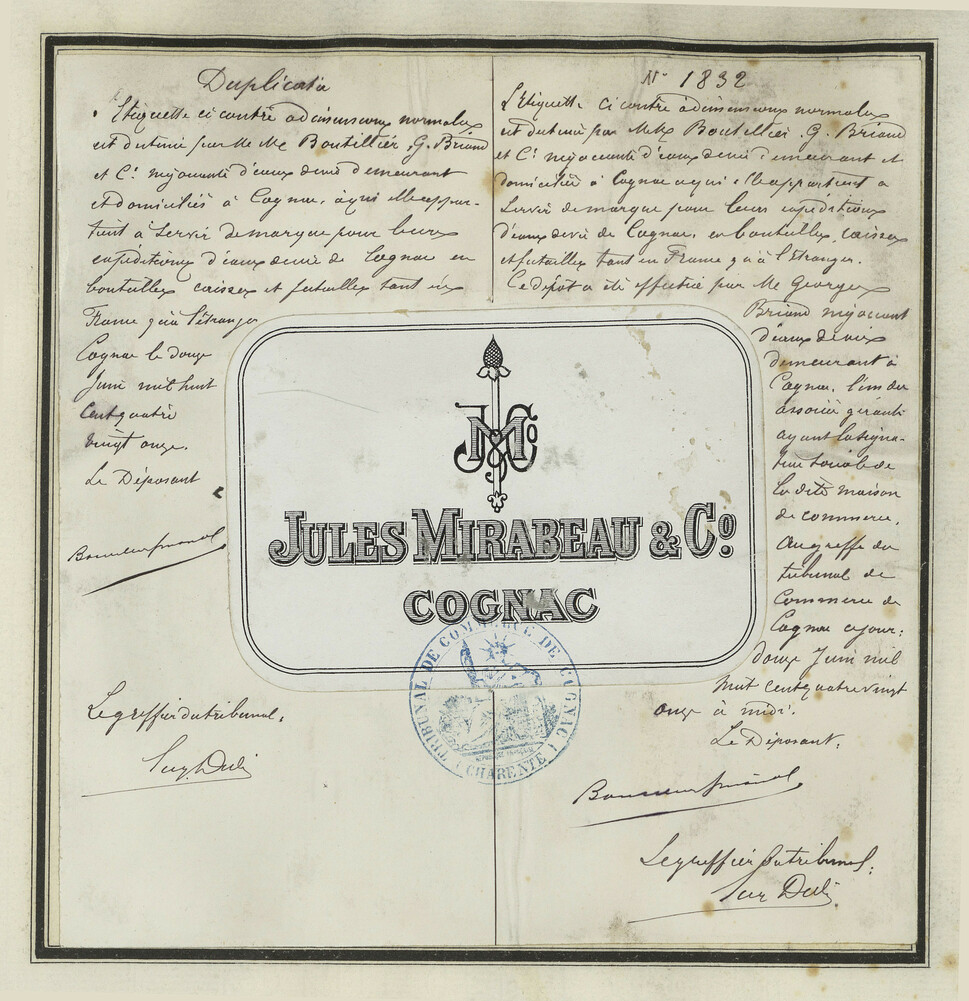 Duplicata
L'Etiquette ci contre a dimensions normales
est destinée par MM. Boutillier, G. Briand
et Cie négociants d'eaux de vie demeurant
et domiciliés à Cognac, à qui elle appar-
tient à servir de marque pour leurs
expéditions d'eaux de vie de Cognac en
bouteilles caisses et futailles tant en
France qu'à l'étranger
Cognac le douze
Juin mil huit
cent quatre
vingt onze.
Le Déposant
Le greffier du tribunal.
No 1832
L'Etiquette ci contre a dimensions normales
est destinée par MM. Boutillier, G. Briand
et Cie négociants d'eaux de vie demeurant et
domiciliés à Cognac a qui elle appartient a
servir de marque pour leurs expéditions
d'eaux de vie de Cognac, en bouteilles, caisses
et futailles tant en France qu'à l'Etranger.
Ce dépôt a été effectué par Mr Georges
Briand négociant
d'eaux de vie
demeurant à
Cognac, l'un des
associés gérants
ayant la signa-
ture sociale de
la dite maison
de commerce,
au greffe du
tribunal de
Commerce de
Cognac ce jour:
douze Juin mil
huit cent quatre vingt
onze à midi.
Le Déposant.
Le greffier du tribunal.
JM&Co
JULES MIRABEAU & Co.
COGNAC
TRIBUNAL DE COMMERCE DE COGNAC
(CHARENTE)